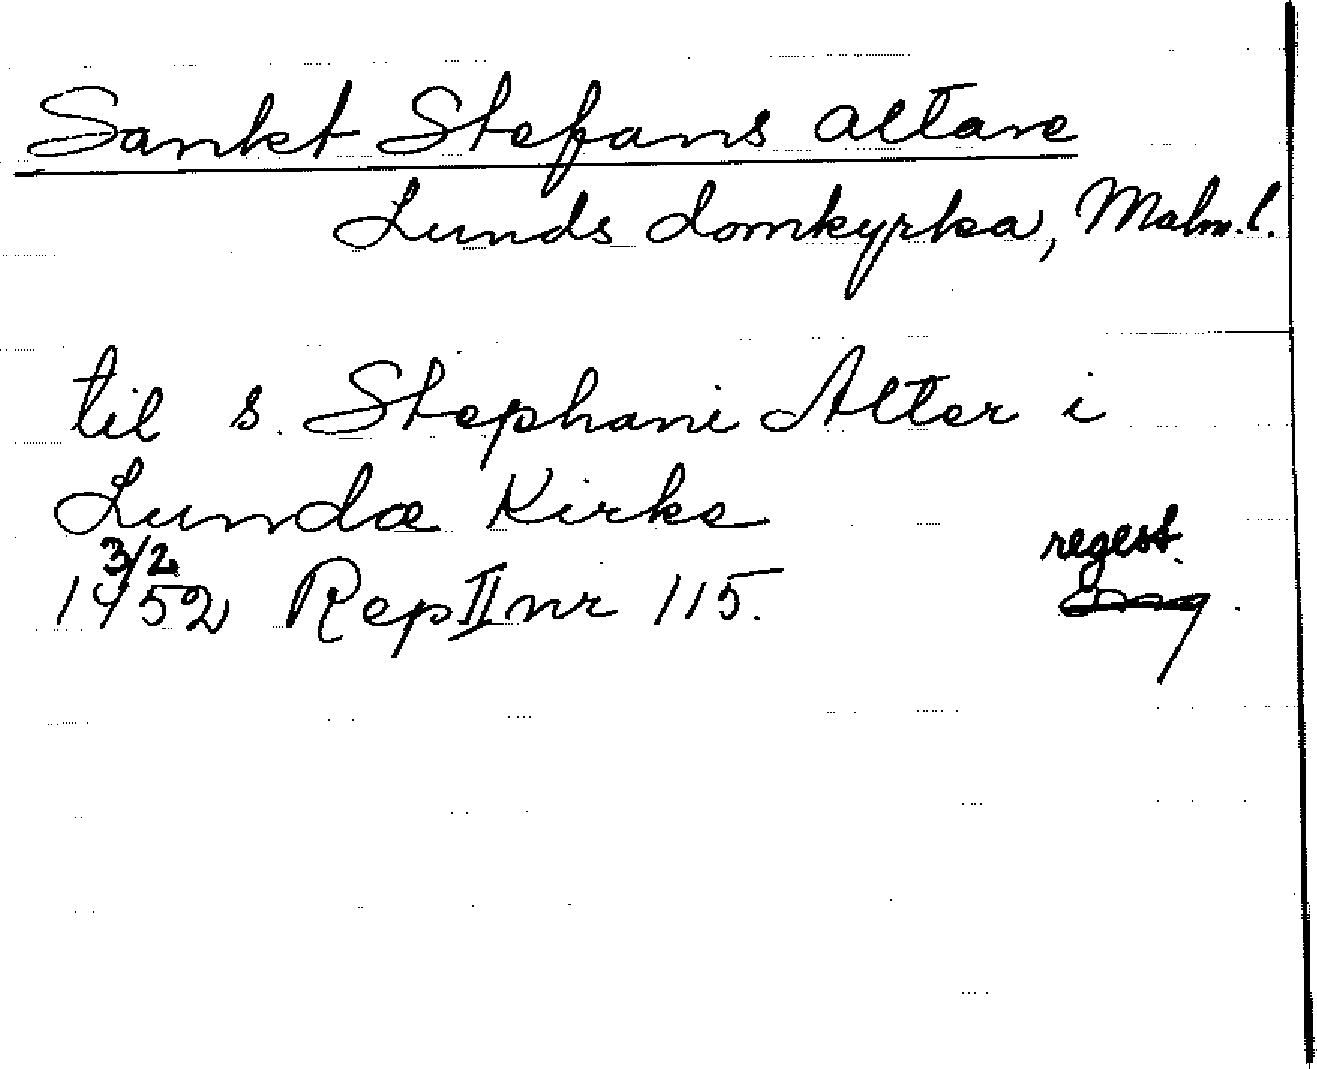 Sankt Stefans altare
Lunds domkyrka, Malm.l.
til s. Stephani Alter i
Lundæ Kirke
3/2
regest.
1452 Rep II nr 115.